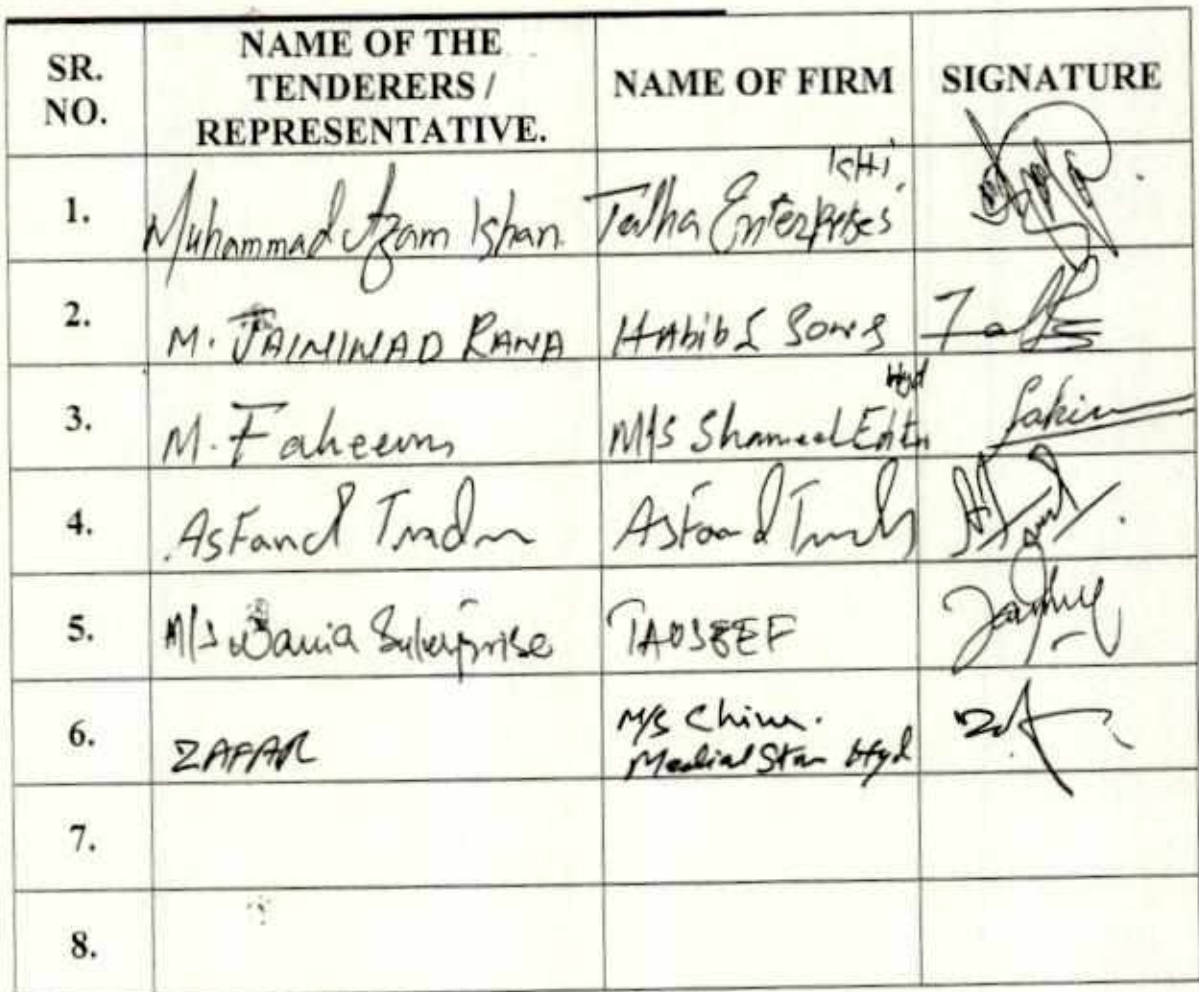 SR. NO.
NAME OF THE TENDERERS / REPRESENTATIVE.
NAME OF FIRM
SIGNATURE
1.
Muhammad Azam Khan
Talha Enterprises
KHI.
2.
M. RANA
Habib & Sons
3.
M. Faheem
M/S Shameel
Hyd
4.
Asfand
Asfand
5.
M/S Wania Enterprise
TAUSEEF
6.
ZAFAR
M/S China
Medical Hyd
7.
8.